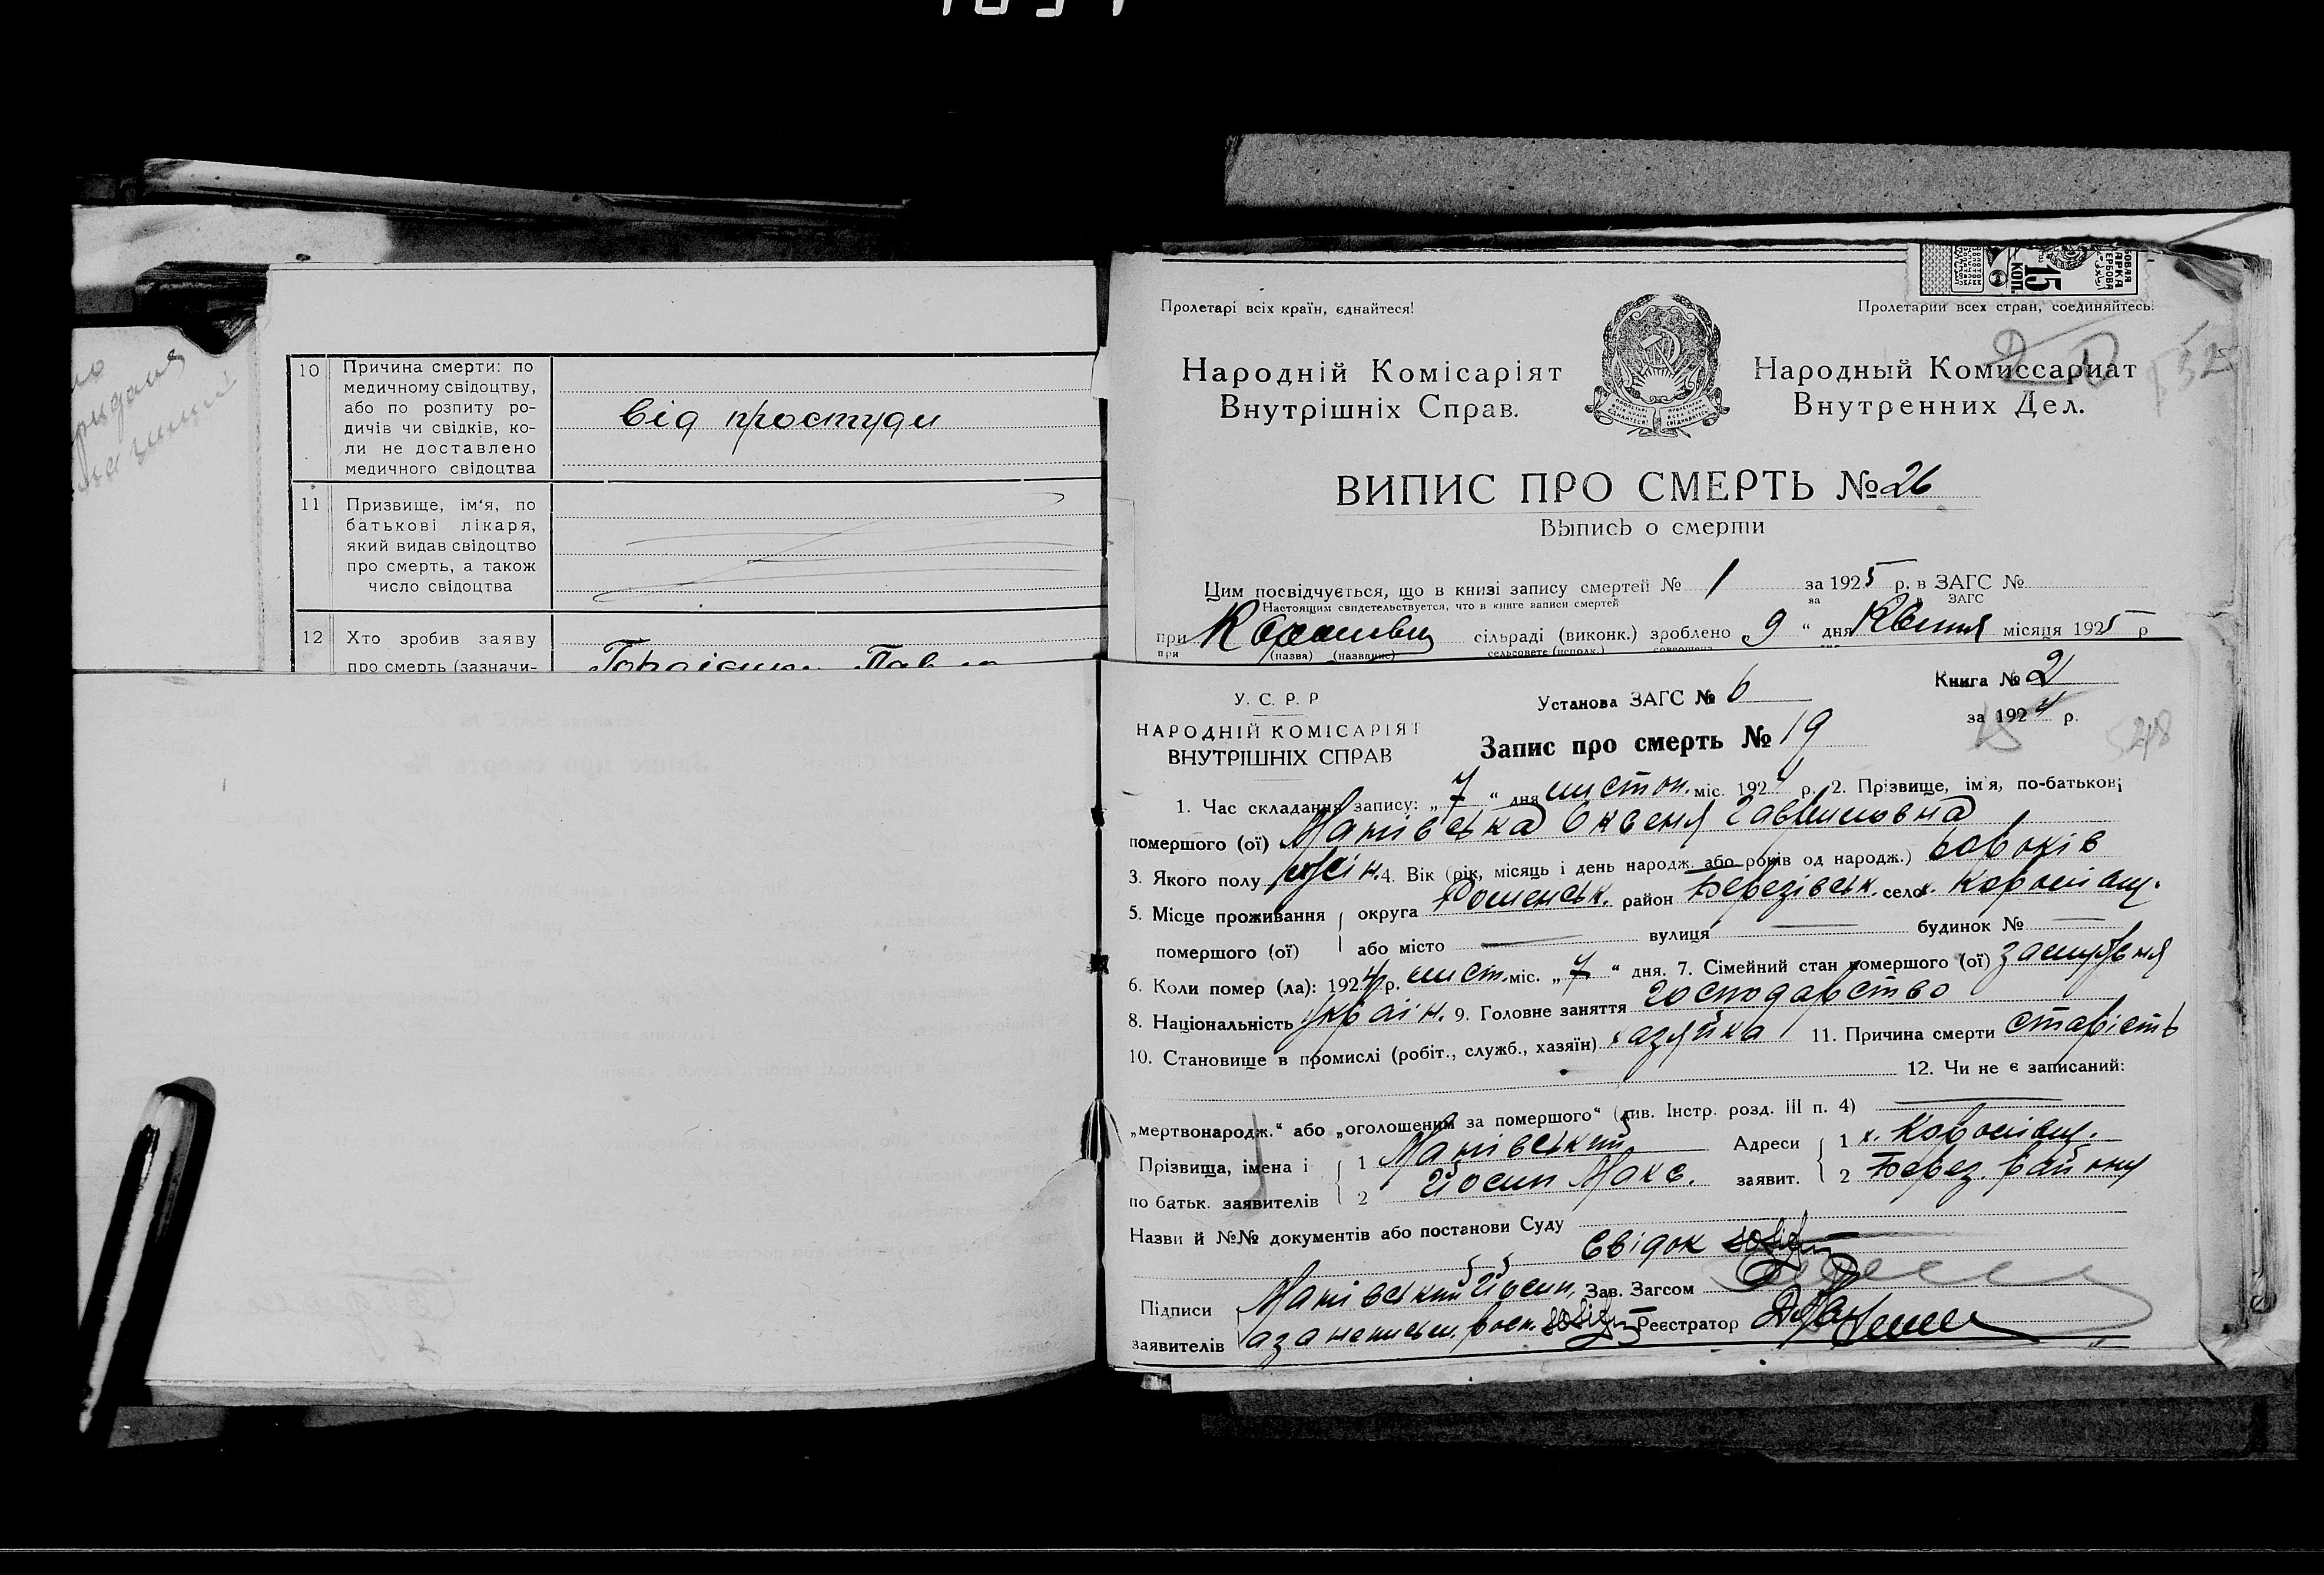 10 Причина смерти: по
медичному свідоцтву,
або по розпиту ро-
дичів чи свідків, ко-
ли не доставлено
медичного свідоцтва
від простуди
11 Призвище, ім'я, по
батькові лікаря,
який видав свідоцтво
про смерть, а також
число свідоцтва
12 Хто зробив заяву
про смерть (зазначи-
15 КОП.
Пролетарі всіх країн, єднайтеся!
Пролетарии всех стран, соединяйтесь!
Народній Комісаріят
Внутрішніх Справ.
Народный Комиссариат
Внутренних Дел.
ВИПИС ПРО СМЕРТЬ № 26
Выпись о смерти
Цим посвідчується, що в книзі запису смертей № 1 за 1925 р. в ЗАГС №
Настоящим свидетельствуется, что в книге записи смертей за в ЗАГС
при сільраді (виконк.) зроблено 9 " дня Квітня місяця 1925 р
при (назва) (название) сельсовете (исполк.) совершена
У. С. Р. Р
НАРОДНІЙ КОМІСАРІЯТ
ВНУТРІШНІХ СПРАВ
Установа ЗАГС № 6
Запис про смерть № 19
Книга № 2
за 1924 р.
1. Час складання запису: „ 7 " дня листоп. міс. 1924 р. 2. Прізвище, ім'я, по-батькові
помершого (ої) Манівська Оксеня Гавриловна
3. Якого полу жін. 4. Вік (рік, місяць і день народж. або років од народж.) 60 років
5. Місце проживання округа Роменськ. район Березівськ. село х.
помершого (ої) або місто — вулиця — будинок № —
6. Коли помер (ла): 1924 р. лист. міс. „ 7 " дня. 7. Сімейний стан помершого (ої) замужня
8. Національність україн. 9. Головне заняття господарство
10. Становище в промислі (робіт., служб., хазяїн) хазяйка 11. Причина смерти старість
12. Чи не є записаний:
„мертвонародж." або „оголошеним за помершого" (див. Інстр. розд. III п. 4) —
Прізвища, імена і 1 Манівський Адреси 1 х.
по батьк. заявителів 2 Йосип Макс. заявит. 2 Берез. району
Назви й №№ документів або постанови Суду
Свідок
Підписи Манівський Йосип, Зав. Загсом
заявителів а за неписьм. росп. Реєстратор